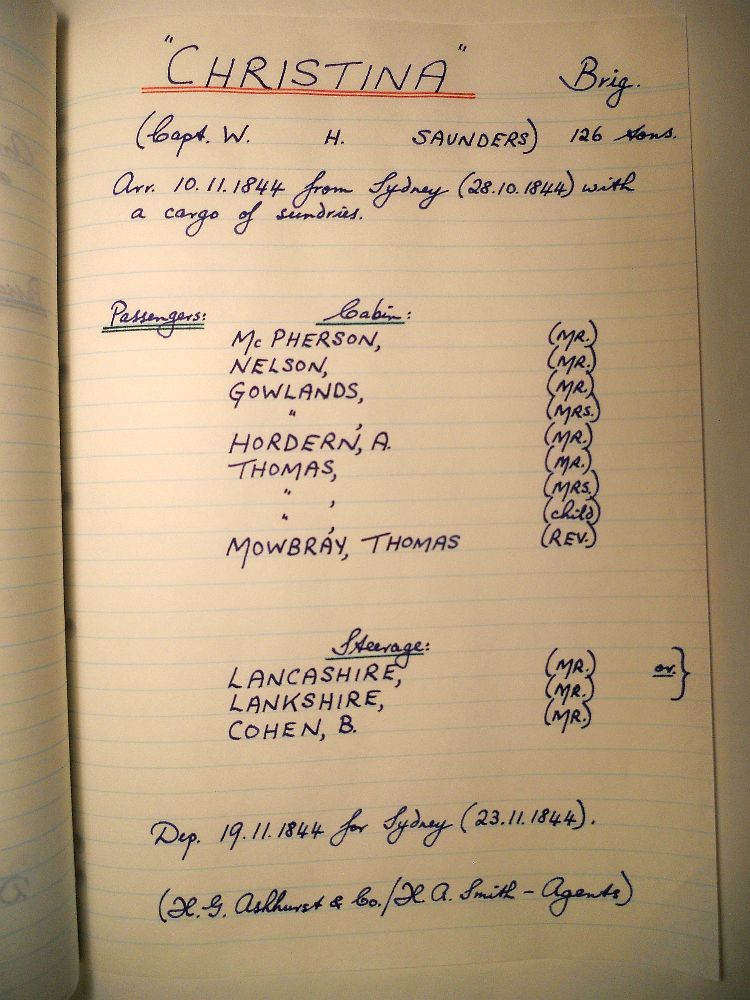 "CHRISTINA" Brig.
(Capt. W. H. SAUNDERS) 126 tons.
Arr. 10.11.1844 from Sydney (28.10.1844) with
a cargo of sundries.
Passengers: Cabin:
McPHERSON, (MR.)
NELSON, (MR.)
GOWLANDS, (MR.)
" , (MRS.)
HORDERN, A. (MR.)
THOMAS, (MR.)
" , (MRS.)
" , (child)
MOWBRAY, THOMAS (REV.)
Steerage:
LANCASHIRE, (MR.) or }
LANKSHIRE, (MR.)
COHEN, B. (MR.)
Dep. 19.11.1844 for Sydney (23.11.1844).
(H.G. Ashhurst & Co./H.A. Smith - Agents)